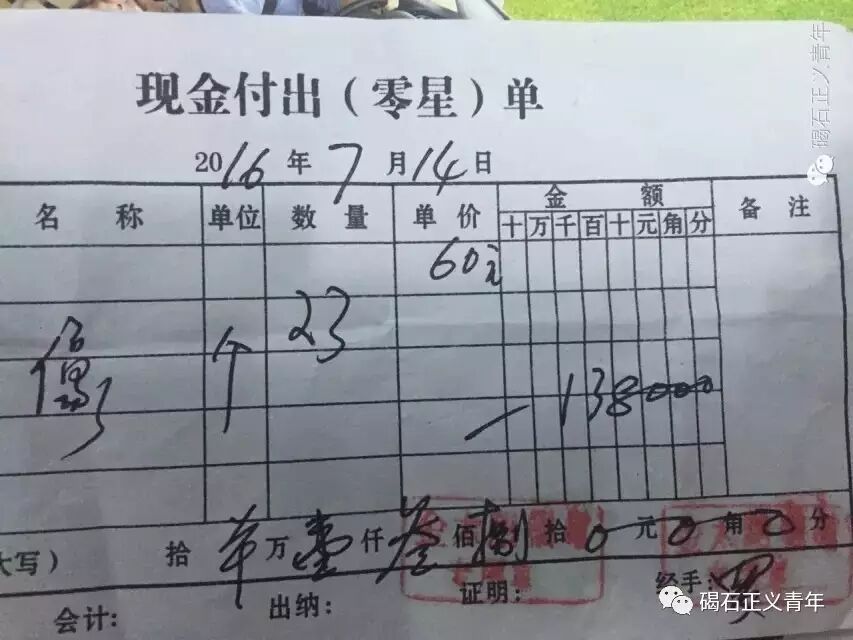 现金付出（零星）单
2016年7月14日
名称 单位 数量 单价 金额 备注
十 万 千 百 十 元 角 分
60元
23
个
138000
大写） 拾 万 壹 仟 叁 佰 捌 拾 0 元 0 角 0 分
会计： 出纳： 证明： 经手：
碣石正义青年
碣石正义青年